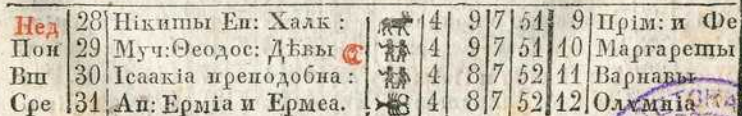 Нед 28 Нікиты Еп: Халк: 4 9 7 51 9 Прім: и Фе
Пон 29 Муч: Ѳеодос: Дѣвы 4 9 7 51 10 Маргареты
Вт 30 Ісаакіа преподобна: 4 8 7 52 11 Варнавы
Сре 31 Ап: Ерміа и Ермеа. 4 8 7 52 12 Олѵмпіа